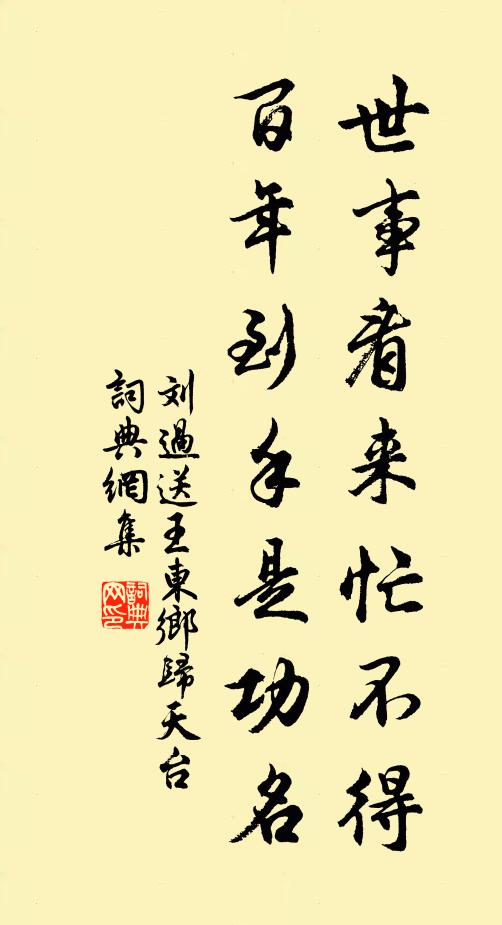 世事看来忙不得
百年到手是功名
刘過送王東鄉歸天台
詞典網集
詞典网印